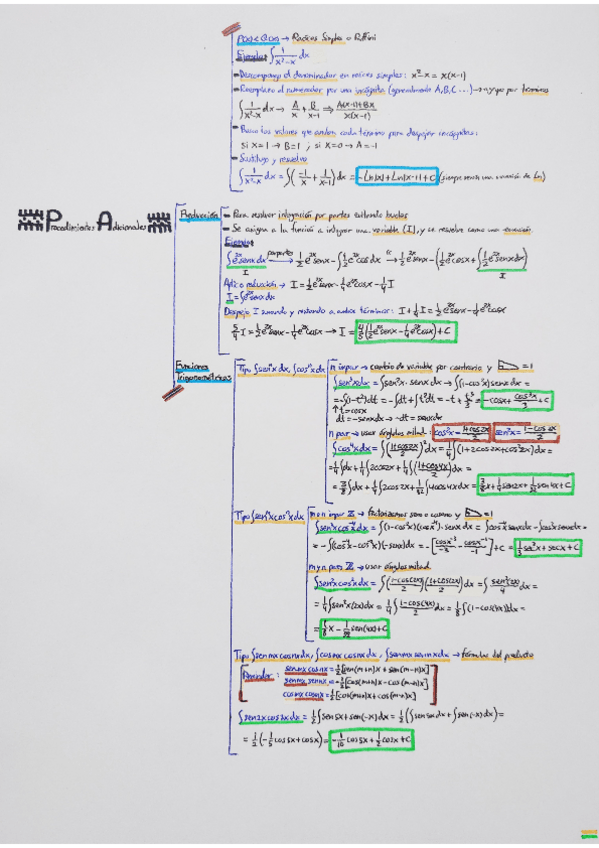 P(x)<Q(x) → Raíces Simples o Ruffini
Ejemplo: ∫ 1/(x²-x) dx
Descompongo el denominador en raíces simples: x²-x = x(x-1)
Reemplazo el numerador por una incógnita (generalmente A, B, C ...) → y por términos
∫ 1/(x²-x) dx → A/x + B/(x-1) ⇒ (A(x-1)+Bx)/(x(x-1))
Busco los valores que anulan cada término para despejar incógnitas:
si x=1 → B=1 ; si x=0 → A=-1
Sustituyo y resuelvo
∫ 1/(x²-x) dx = ∫(-1/x + 1/(x-1)) dx = -Ln|x| + Ln|x-1| + C (siempre sale una ecuación de Ln)
Procedimientos Adicionales
Reducción
Para resolver integración por partes evitando bucles
Se asigna a la función a integrar una variable (I), y se resuelve como una ecuación
Ejemplo:
∫e²ˣ senx dx por partes → 1/2 e²ˣ senx - ∫ 1/2 e²ˣ cosx dx → 1/2 e²ˣ senx - (1/2 e²ˣ cosx + ∫ 1/2 e²ˣ senx dx)
I I
Aplico reducción → I = 1/2 e²ˣ senx - 1/4 e²ˣ cosx - 1/4 I
I = ∫e²ˣ senx dx
Despejo I sumando y restando a ambos términos: I + 1/4 I = 1/2 e²ˣ senx - 1/4 e²ˣ cosx
5/4 I = 1/2 e²ˣ senx - 1/4 e²ˣ cosx → I = 4/5 (1/2 e²ˣ senx - 1/4 e²ˣ cosx) + C
Funciones Trigonométricas
Tipo ∫senⁿx dx, ∫cosⁿx dx
n impar → cambio de variable por contrario y =1
∫sen³x dx = ∫sen²x · senx dx → ∫(1-cos²x) senx dx =
= -∫(1-t²)dt = -∫dt + ∫t²dt = -t + t³/3 = -cosx + cos³x/3 + C
↑ t = cosx
dt = -senx dx → -dt = senx dx
n par → usar ángulos mitad: cos²x = (1+cos2x)/2 sen²x = (1-cos2x)/2
∫cos⁴x dx = ∫((1+cos2x)/2)² dx = 1/4 ∫(1+2cos2x+cos²2x) dx =
= 1/4 ∫dx + 1/4 ∫2cos2x + 1/4 ∫((1+cos4x)/2) dx =
= 3/8 ∫dx + 1/4 ∫2cos2x + 1/32 ∫4cos4x dx = 3/8 x + 1/4 sen2x + 1/32 sen4x + C
Tipo ∫senᵐx cosⁿx dx
m o n impar Z → factorizamos seno o coseno y =1
∫sen³x cos⁻⁴x dx = ∫(1-cos²x)(cos⁻⁴x) · senx dx = ∫cos⁻⁴x senx dx - ∫cos⁻²x senx dx =
= -∫(cos⁻⁴x - cos⁻²x)(-senx) dx = -[cos⁻³x/-3 - cos⁻¹x/-1] + C = 1/3 sec³x + secx + C
m y n pares Z → usar ángulos mitad
∫sen²x cos²x dx = ∫((1-cos(2x))/2)((1+cos(2x))/2) dx = ∫ sen²(2x)/4 dx =
= 1/4 ∫sen²x(2x) dx = 1/4 ∫ (1-cos(4x))/2 dx = 1/8 ∫(1-cos(4x)) dx =
= 1/8 x - 1/32 sen(4x) + C
Tipo ∫senmx cosnx dx, ∫cosmx cosnx dx, ∫senmx sennx dx → fórmulas del producto
Recordar: senmx cosnx = 1/2 [sen(m+n)x + sen(m-n)x]
senmx sennx = -1/2 [cos(m+n)x - cos(m-n)x]
cosmx cosnx = 1/2 [cos(m+n)x + cos(m-n)x]
∫sen2x cos3x dx = 1/2 ∫sen5x + sen(-x) dx = 1/2 (∫sen5x dx + ∫sen(-x) dx) =
= 1/2 (-1/5 cos5x + cosx) = -1/10 cos5x + 1/2 cosx + C